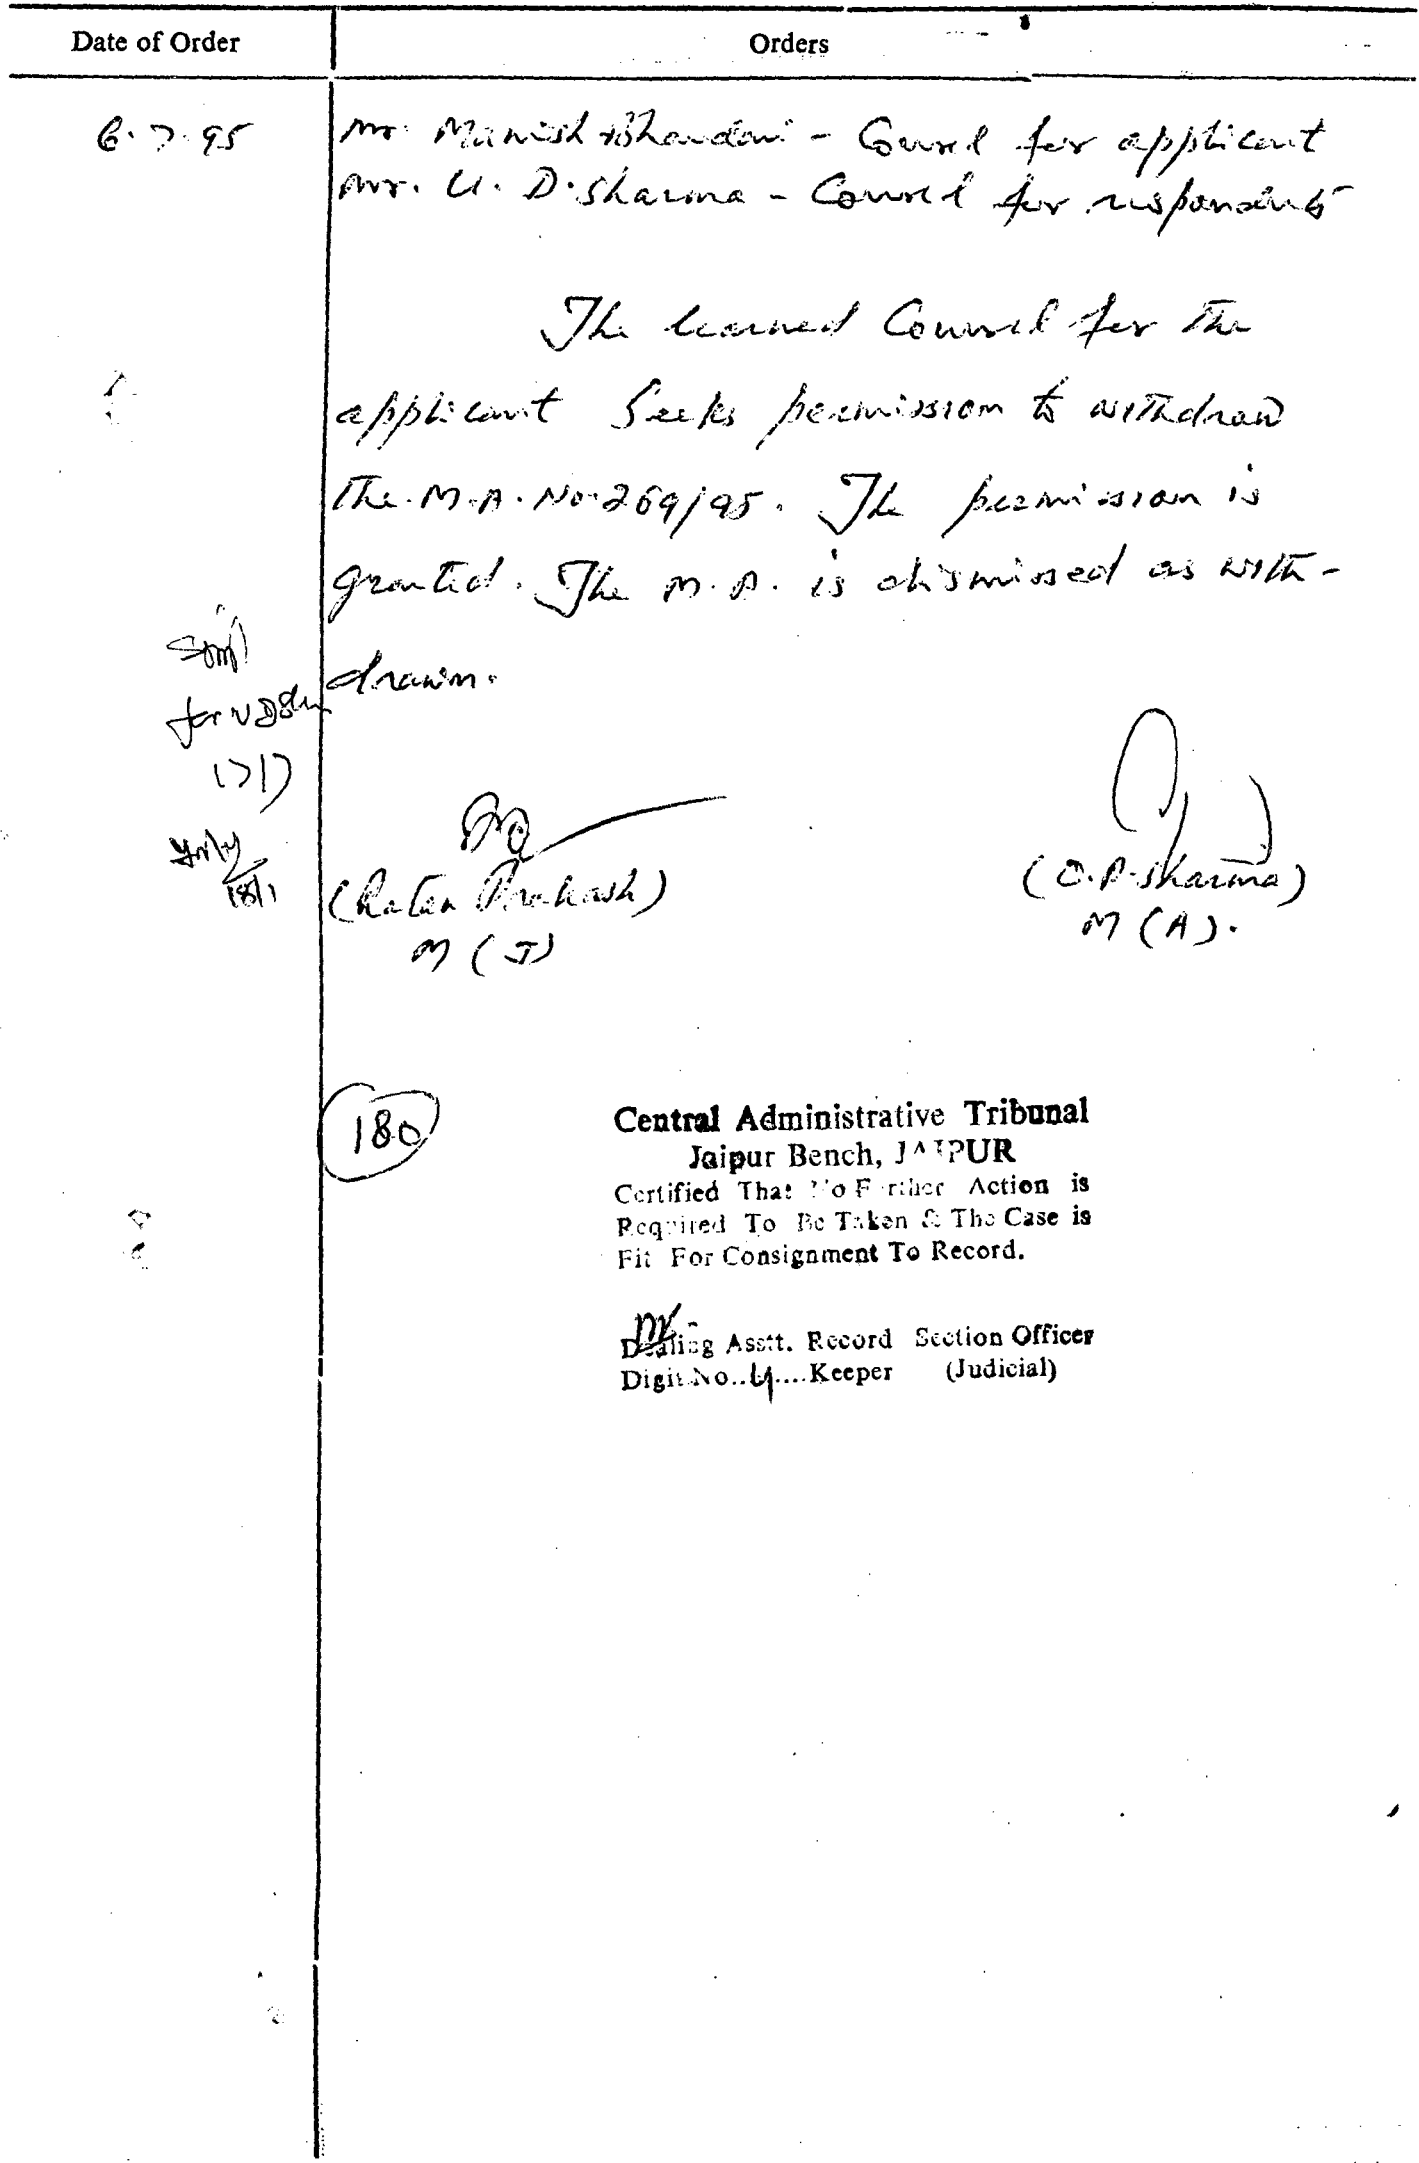 Date of Order Orders
6.7.95 Mr. Manish Bhandari - Counsel for applicant
Mr. U. D. Sharma - Counsel for respondents
The learned Counsel for the
applicant Seeks permission to withdraw
the M.A. No. 269/95. The permission is
granted. The M.A. is dismissed as with-
drawn.
for U D Sh
17/7
18/7
(Ratan Prakash)
M (J)
(O.P. Sharma)
M (A).
180
Central Administrative Tribunal
Jaipur Bench, JAIPUR
Certified That No Further Action is
Required To Be Taken & The Case is
Fit For Consignment To Record.
Dealing Asstt. Record Section Officer
Digit No..4....Keeper (Judicial)